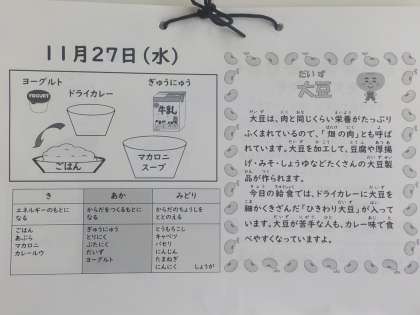 11月27日(水)
ヨーグルト
ドライカレー
ぎゅうにゅう
YOGURT
牛乳
ごはん
マカロニ
スープ
き
あか
みどり
エネルギーのもとに
なる
からだをつくるもとに
なる
からだのちょうしを
ととのえる
ごはん
あぶら
マカロニ
カレールウ
ぎゅうにゅう
とりにく
ぶたにく
だいず
ヨーグルト
とうもろこし
キャベツ
パセリ
にんじん
たまねぎ
にんにく しょうが
だいず
大豆
大豆は、肉と同じくらい栄養がたっぷり
ふくまれているので、「畑の肉」とも呼ば
れています。大豆を加工して、豆腐や厚揚
げ・みそ・しょうゆなどたくさんの大豆製
品が作られます。
今日の給食では、ドライカレーに大豆を
細かくきざんだ「ひきわり大豆」が入って
います。大豆が苦手な人も、カレー味で食
べやすくなっていますよ。